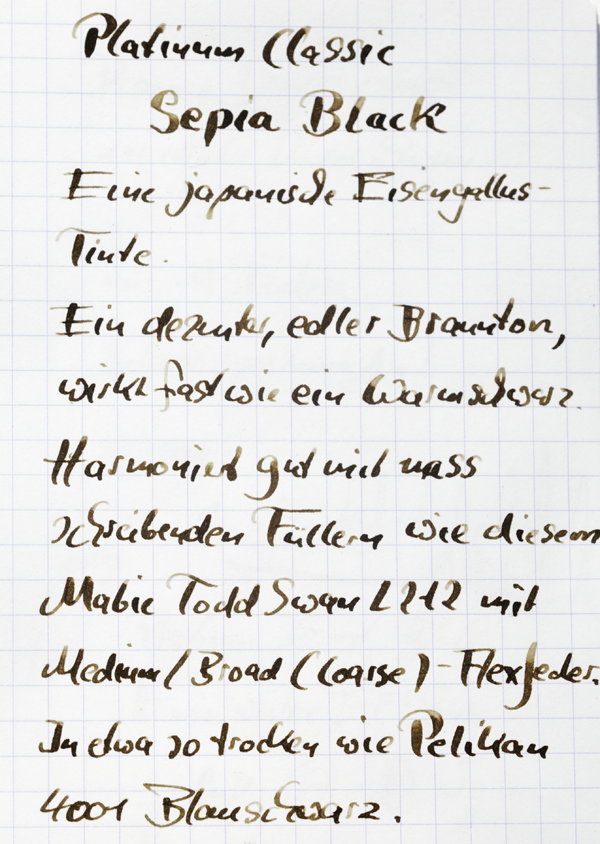 Platinum Classic
Sepia Black
Eine japanische Eisengallus-
Tinte.
Ein dezenter, edler Braunton,
wirkt fast wie ein Warmschwarz.
Harmoniert gut mit nass
schreibenden Füllern wie diesem
Mabie Todd Swan L212 mit
Medium/Broad (Coarse)-Flexfeder.
In etwa so trocken wie Pelikan
4001 Blauschwarz.